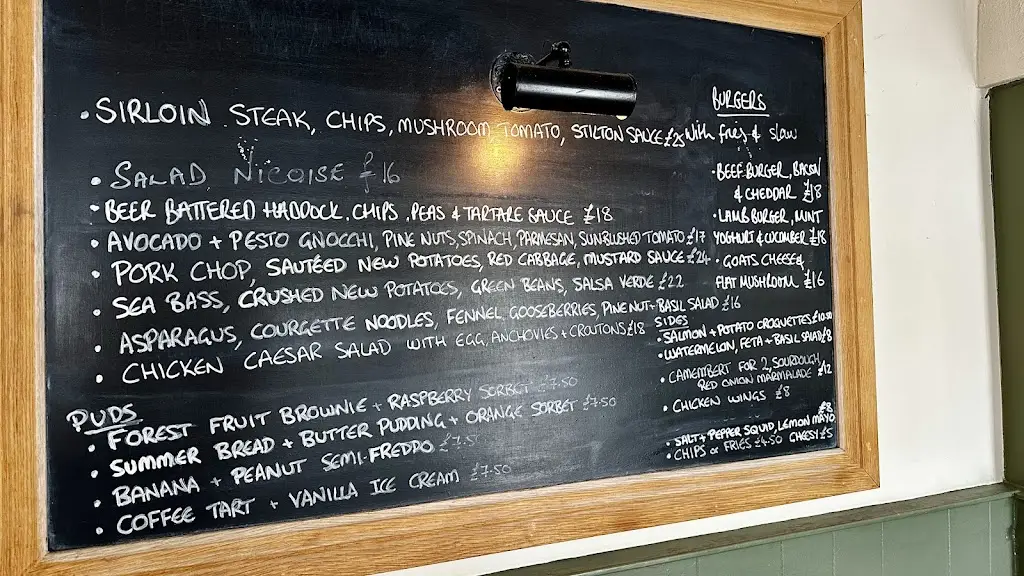 • SIRLOIN STEAK, CHIPS, MUSHROOM, TOMATO, STILTON SAUCE £25
• SALAD NICOISE £16
• BEER BATTERED HADDOCK, CHIPS, PEAS & TARTARE SAUCE £18
• AVOCADO + PESTO GNOCCHI, PINE NUTS, SPINACH, PARMESAN, SUNBLUSHED TOMATO £17
• PORK CHOP, SAUTÉED NEW POTATOES, RED CABBAGE, MUSTARD SAUCE £24
• SEA BASS, CRUSHED NEW POTATOES, GREEN BEANS, SALSA VERDE £22
• ASPARAGUS, COURGETTE NOODLES, FENNEL, GOOSEBERRIES, PINE NUT + BASIL SALAD £16
• CHICKEN CAESAR SALAD WITH EGG, ANCHOVIES + CROUTONS £18
PUDS
• FOREST FRUIT BROWNIE + RASPBERRY SORBET £7.50
• SUMMER BREAD + BUTTER PUDDING + ORANGE SORBET £7.50
• BANANA + PEANUT SEMI-FREDDO
• COFFEE TART + VANILLA ICE CREAM £7.50
BURGERS
With fries & slaw
• BEEF BURGER, BACON
& CHEDDAR £18
• LAMB BURGER, MINT
YOGHURT & CUCUMBER £18
• GOATS CHEESE &
FLAT MUSHROOM £16
SIDES
• SALMON + POTATO CROQUETTES £10.50
• WATERMELON, FETA + BASIL SALAD £8
• CAMEMBERT FOR 2, SOURDOUGH,
RED ONION MARMALADE £12
• CHICKEN WINGS £8
• SALT + PEPPER SQUID, LEMON MAYO £8
• CHIPS or FRIES £4.50 CHEESY £5